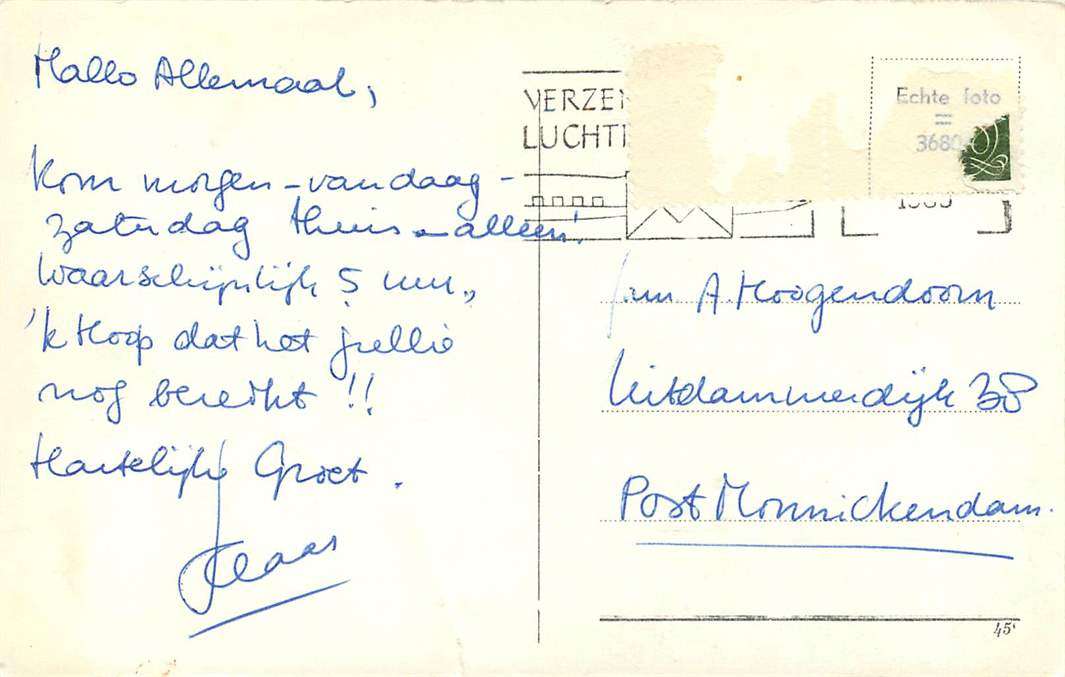 Hallo Allemaal,
Kom morgen - vandaag -
zaterdag thuis - alleen!
Waarschijnlijk 5 uur,,
'k Hoop dat het jullie
nog bereikt !!
Hartelijke Groet.
Klaas
VERZEN
LUCHT
Echte foto
=
3680
fam A. Hoogendoorn
Uitdammerdijk 38
Post Monnickendam.
45ᶜ